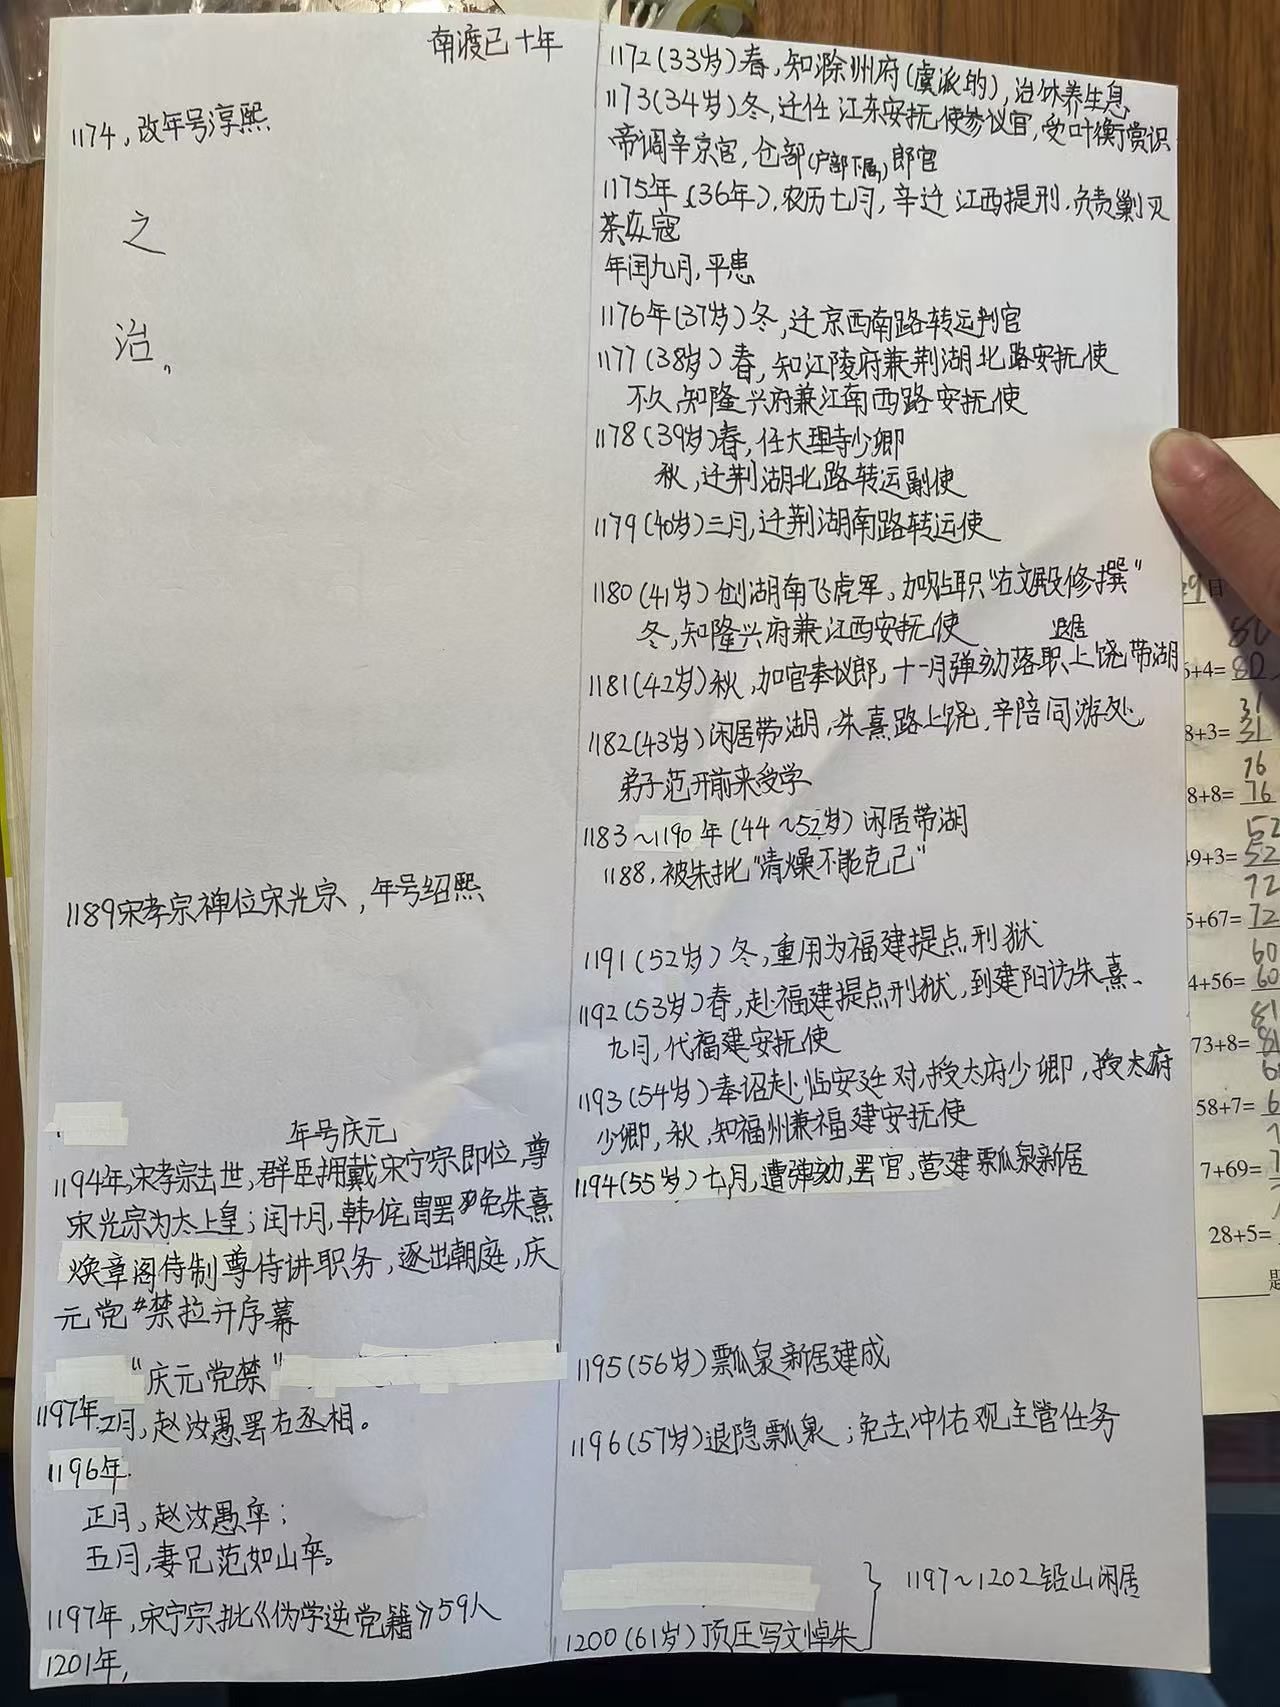 南渡已十年
1174，改年号淳熙
之
治。
1189宋孝宗禅位宋光宗，年号绍熙
年号庆元
1194年，宋孝宗去世，群臣拥戴宋宁宗即位，尊
宋光宗为太上皇；闰十月，韩侂胄罢免朱熹
焕章阁侍制尊侍讲职务，逐出朝庭，庆
元党禁拉开序幕
“庆元党禁”
1197年
二月，赵汝愚罢右丞相。
1196年
正月，赵汝愚卒；
五月，妻兄范如山卒。
1197年，宋宁宗批《伪学逆党籍》59人
1201年，
1172(33岁)春，知滁州府(虞派的)，治休养生息
1173(34岁)冬，迁任江东安抚使参议官，受叶衡赏识
帝调辛京官，仓部(户部下属)郎官
1175年(36年)，农历七月，辛迁江西提刑，负责剿灭
茶寇
年闰九月，平患
1176年(37岁)冬，迁京西南路转运判官
1177(38岁)春，知江陵府兼荆湖北路安抚使
不久，知隆兴府兼江南西路安抚使
1178(39岁)春，任大理寺少卿
秋，迁荆湖北路转运副使
1179(40岁)三月，迁荆湖南路转运使
1180(41岁)创湖南飞虎军，加贴职“右文殿修撰”
冬，知隆兴府兼江西安抚使
退居
1181(42岁)秋，加官奉议郎，十一月弹劾落职上饶带湖
1182(43岁)闲居带湖，朱熹路上饶，辛陪同游处，
弟子范开前来受学
1183~1190年(44~52岁)闲居带湖
1188，被朱批“清燥不能克己”
1191(52岁)冬，重用为福建提点刑狱
1192(53岁)春，赴福建提点刑狱，到建阳访朱熹、
九月，代福建安抚使
1193(54岁)奉诏赴临安廷对，授太府少卿，授太府
少卿，秋，知福州兼福建安抚使
1194(55岁)七月，遭弹劾，罢官，营建瓢泉新居
1195(56岁)瓢泉新居建成
1196(57岁)退隐瓢泉；免去冲佑观主管任务
1197~1202铅山闲居
1200(61岁)顶压写文悼朱
29日
6+4=82
8+3=31
8+8=76
49+3=52
5+67=72
4+56=60
73+8=81
58+7=
7+69=
28+5=
题